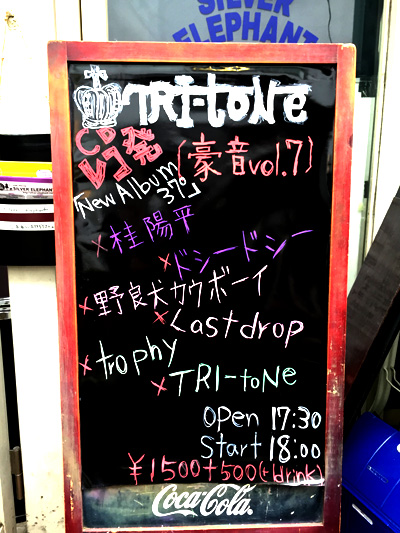 SILVER
ELEPHANT
TRI-toNe
CD
レコ発
〔豪音vol.7〕
「New Album
37°」
×桂陽平
×ドシードシー
×野良犬カウボーイ
×Lastdrop
×trophy
×TRI-toNe
open 17:30
Start 18:00
¥1500+500(+drink)
Coca-Cola
SILVER ELEPHANT